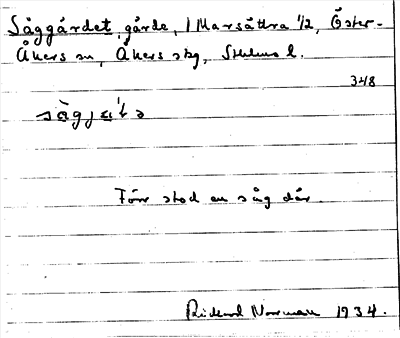 Såggärdet, gärde, 1 Marsättra 1/2, Öster-
Åkers sn, Åkers skg, Sthlms l.
348
Förr stod en såg där.
Richard Norman 1934.